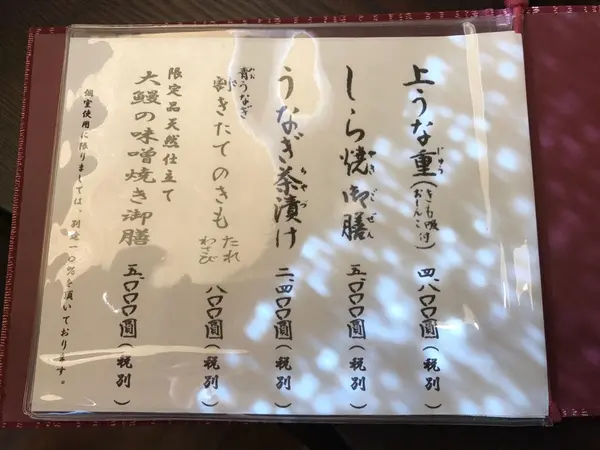 上うな重(きも吸付 おしんこ) 四、八〇〇圓(税別)
じゅう
しら焼御膳 五、〇〇〇圓(税別)
やき ごぜん
うなぎ茶漬け 二、四〇〇圓(税別)
ちゃづ
青うなぎ
割きたてのきも たれ わさび 八〇〇圓(税別)
限定品天然仕立て
大鰻の味噌焼き御膳 五、〇〇〇圓(税別)
個室使用に限りましては、別途一〇%を頂いております。